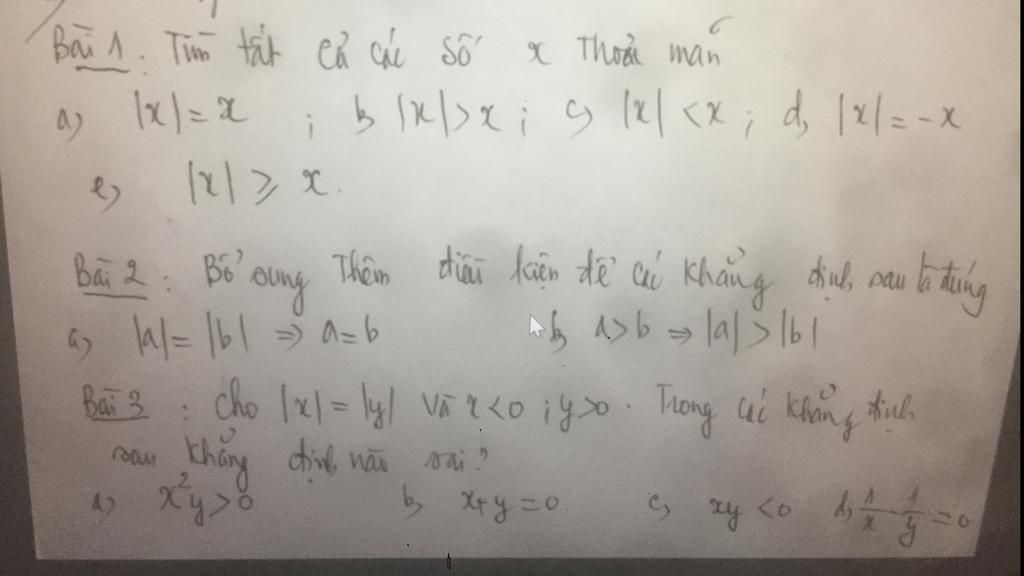 Bài 1 : Tìm tất cả các số x thoả mãn
a, |x| = x ; b, |x| > x ; c, |x| < x ; d, |x| = -x
e, |x| ⩾ x.
Bài 2 : Bổ sung thêm điều kiện để các khẳng định sau là đúng
a, |a| = |b| ⇒ a = b b, a > b ⇒ |a| > |b|
Bài 3 : Cho |x| = |y| và x < 0 ; y > 0 . Trong các khẳng định
sau khẳng định nào sai ?
a, x²y > 0 b, x + y = 0 c, xy < 0 d, 1/x - 1/y = 0